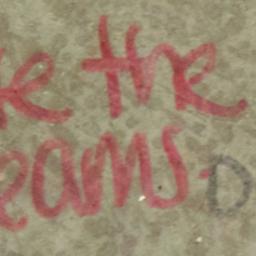 the
eams
D